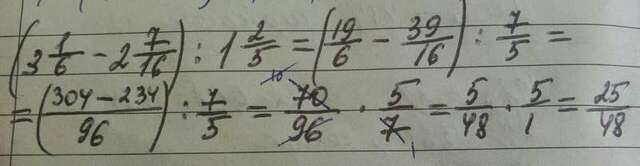 (3 1/6 - 2 7/16) : 1 2/5 = (19/6 - 39/16) : 7/5 =
= (304 - 234)/96 : 7/5 = 70/96 · 5/7 = 5/48 · 5/1 = 25/48